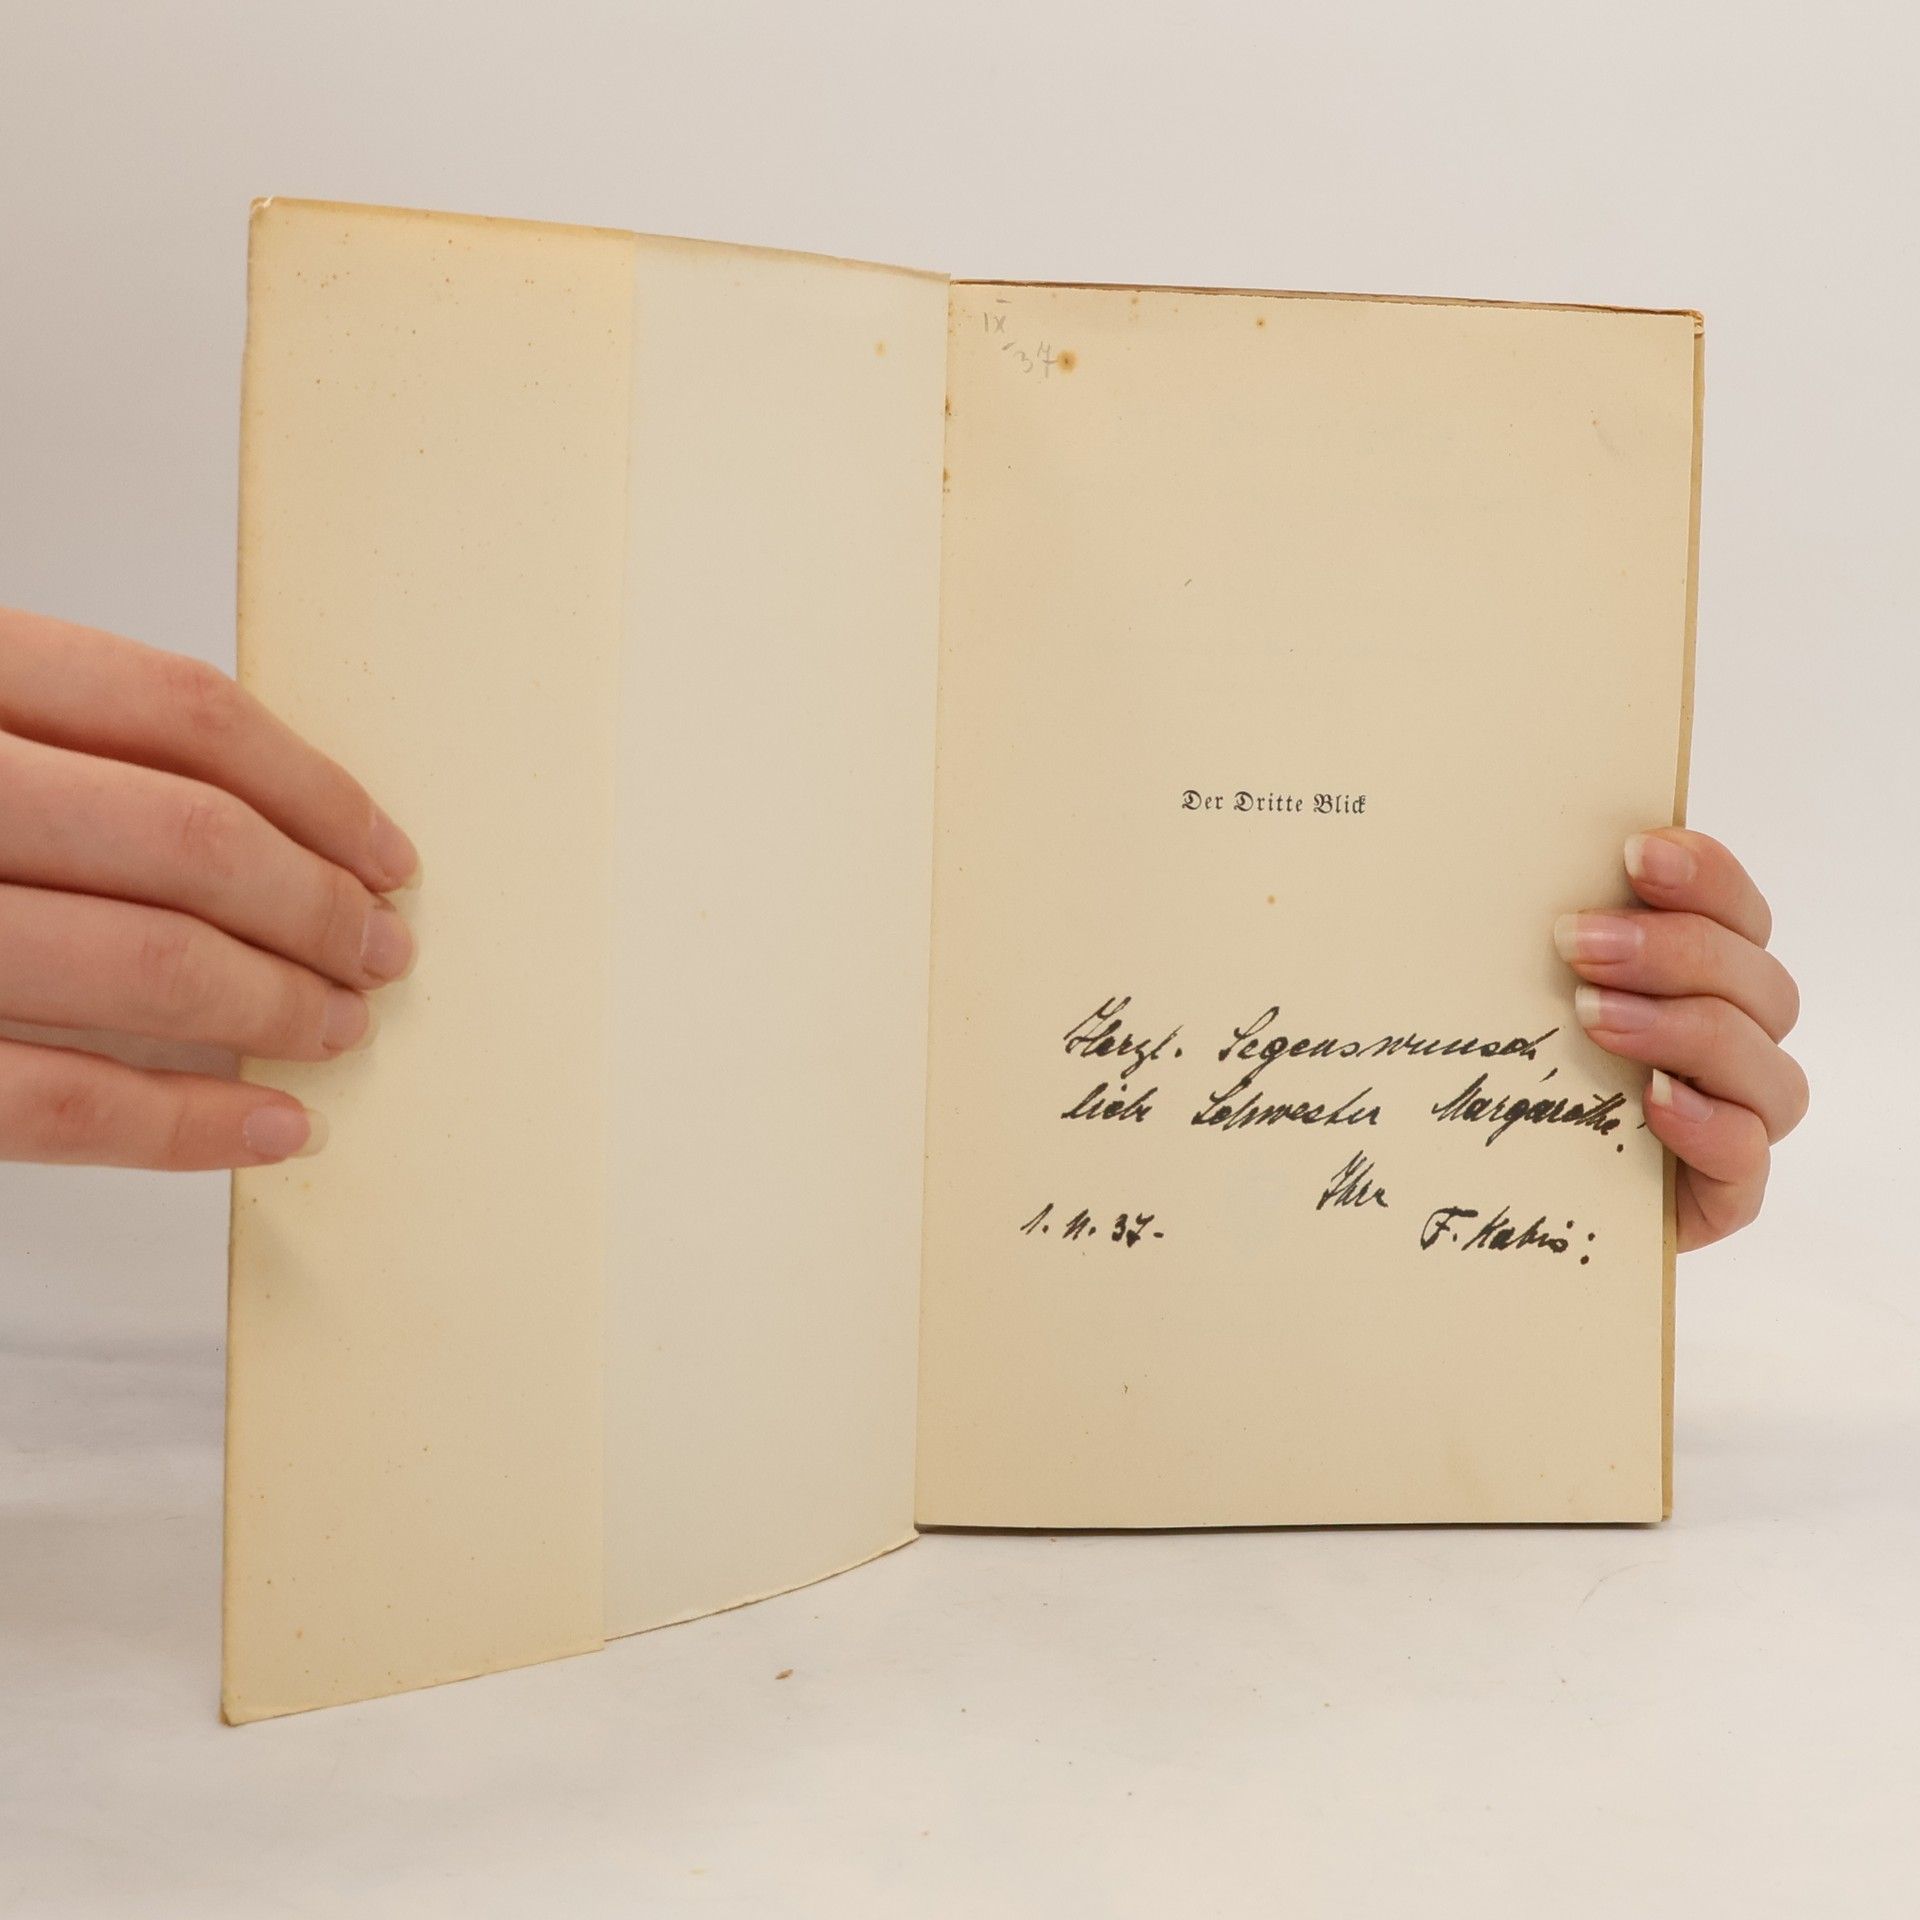 IX
37
Der Dritte Blick
Herzl. Segenswunsch,
liebe Schwester Margarethe!
Ihr
1. 11. 37.-
F. Kabis: